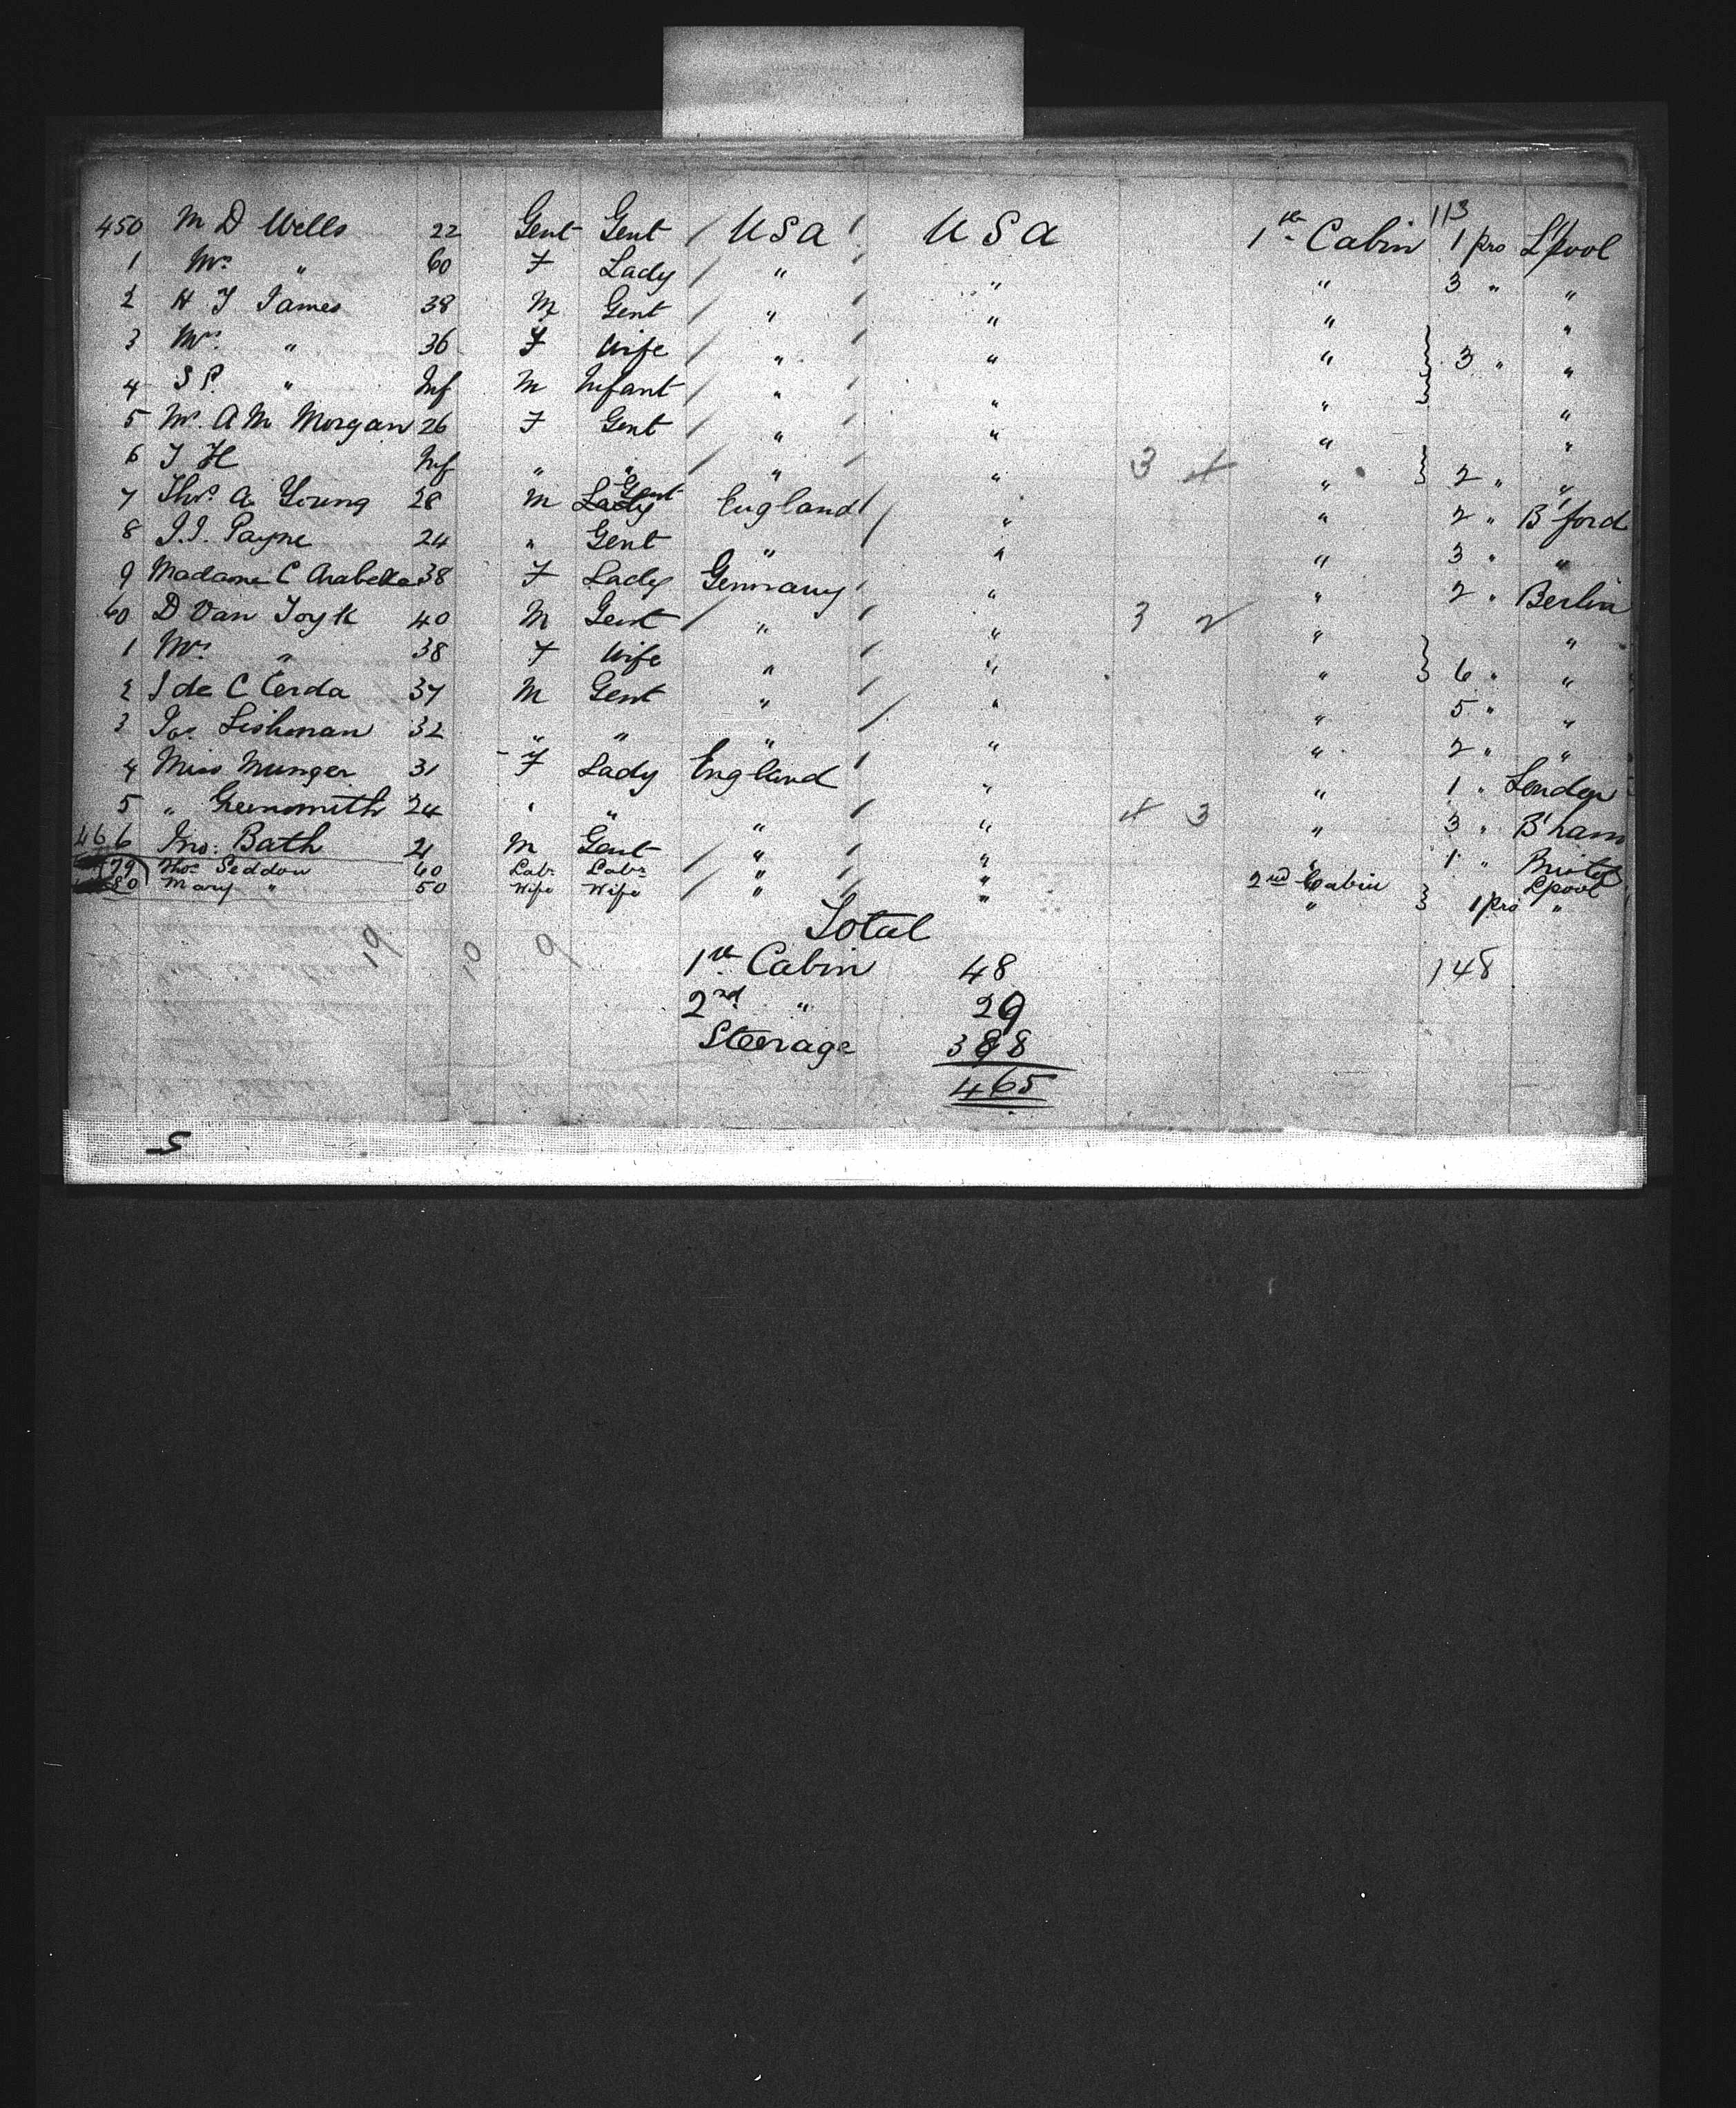 113
450 M D Wells 22 Gent Gent / USA / USA 1st Cabin 1 pro L'pool
1 Mrs " 60 F Lady / " " " 3 " "
2 H J James 38 M Gent / " / " " "
3 Mrs " 36 F Wife / " / " " } 3 " "
4 S P. " Inf M Infant / " / " " "
5 Mrs A M Morgan 26 F Gent / " / " " "
6 J H Inf " " / " / " 3 4 " } 2 " "
7 Thos A Young 28 M Lady Gent England / " " 2 " B'ford
8 J.J. Payne 24 " Gent " " " 3 " "
9 Madame C Arabella 38 F Lady Germany / " " 2 " Berlin
60 D Van Toyk 40 M Gent / " / " 3 2 " "
1 Mrs " 38 F Wife " / " " } 6 " "
2 J de C Cerda 37 M Gent " / " 5 " "
3 Jos Lishman 32 " " " / " " 2 " "
4 Miss Munger 31 F Lady England / " " 1 " London
5 " Greensmith 24 " " " / " 4 3 " 3 " B'ham
466 Jno. Bath 21 M Gent / " / " " 1 " Bristol
79 Thos Seddon 60 Labr Labr / " / " 2nd Cabin L'pool
80 Mary " 50 Wife Wife / " / " " } 1 pro "
19 10 9
Total
1st Cabin 48 148
2nd " 29
Steerage 388
465
5